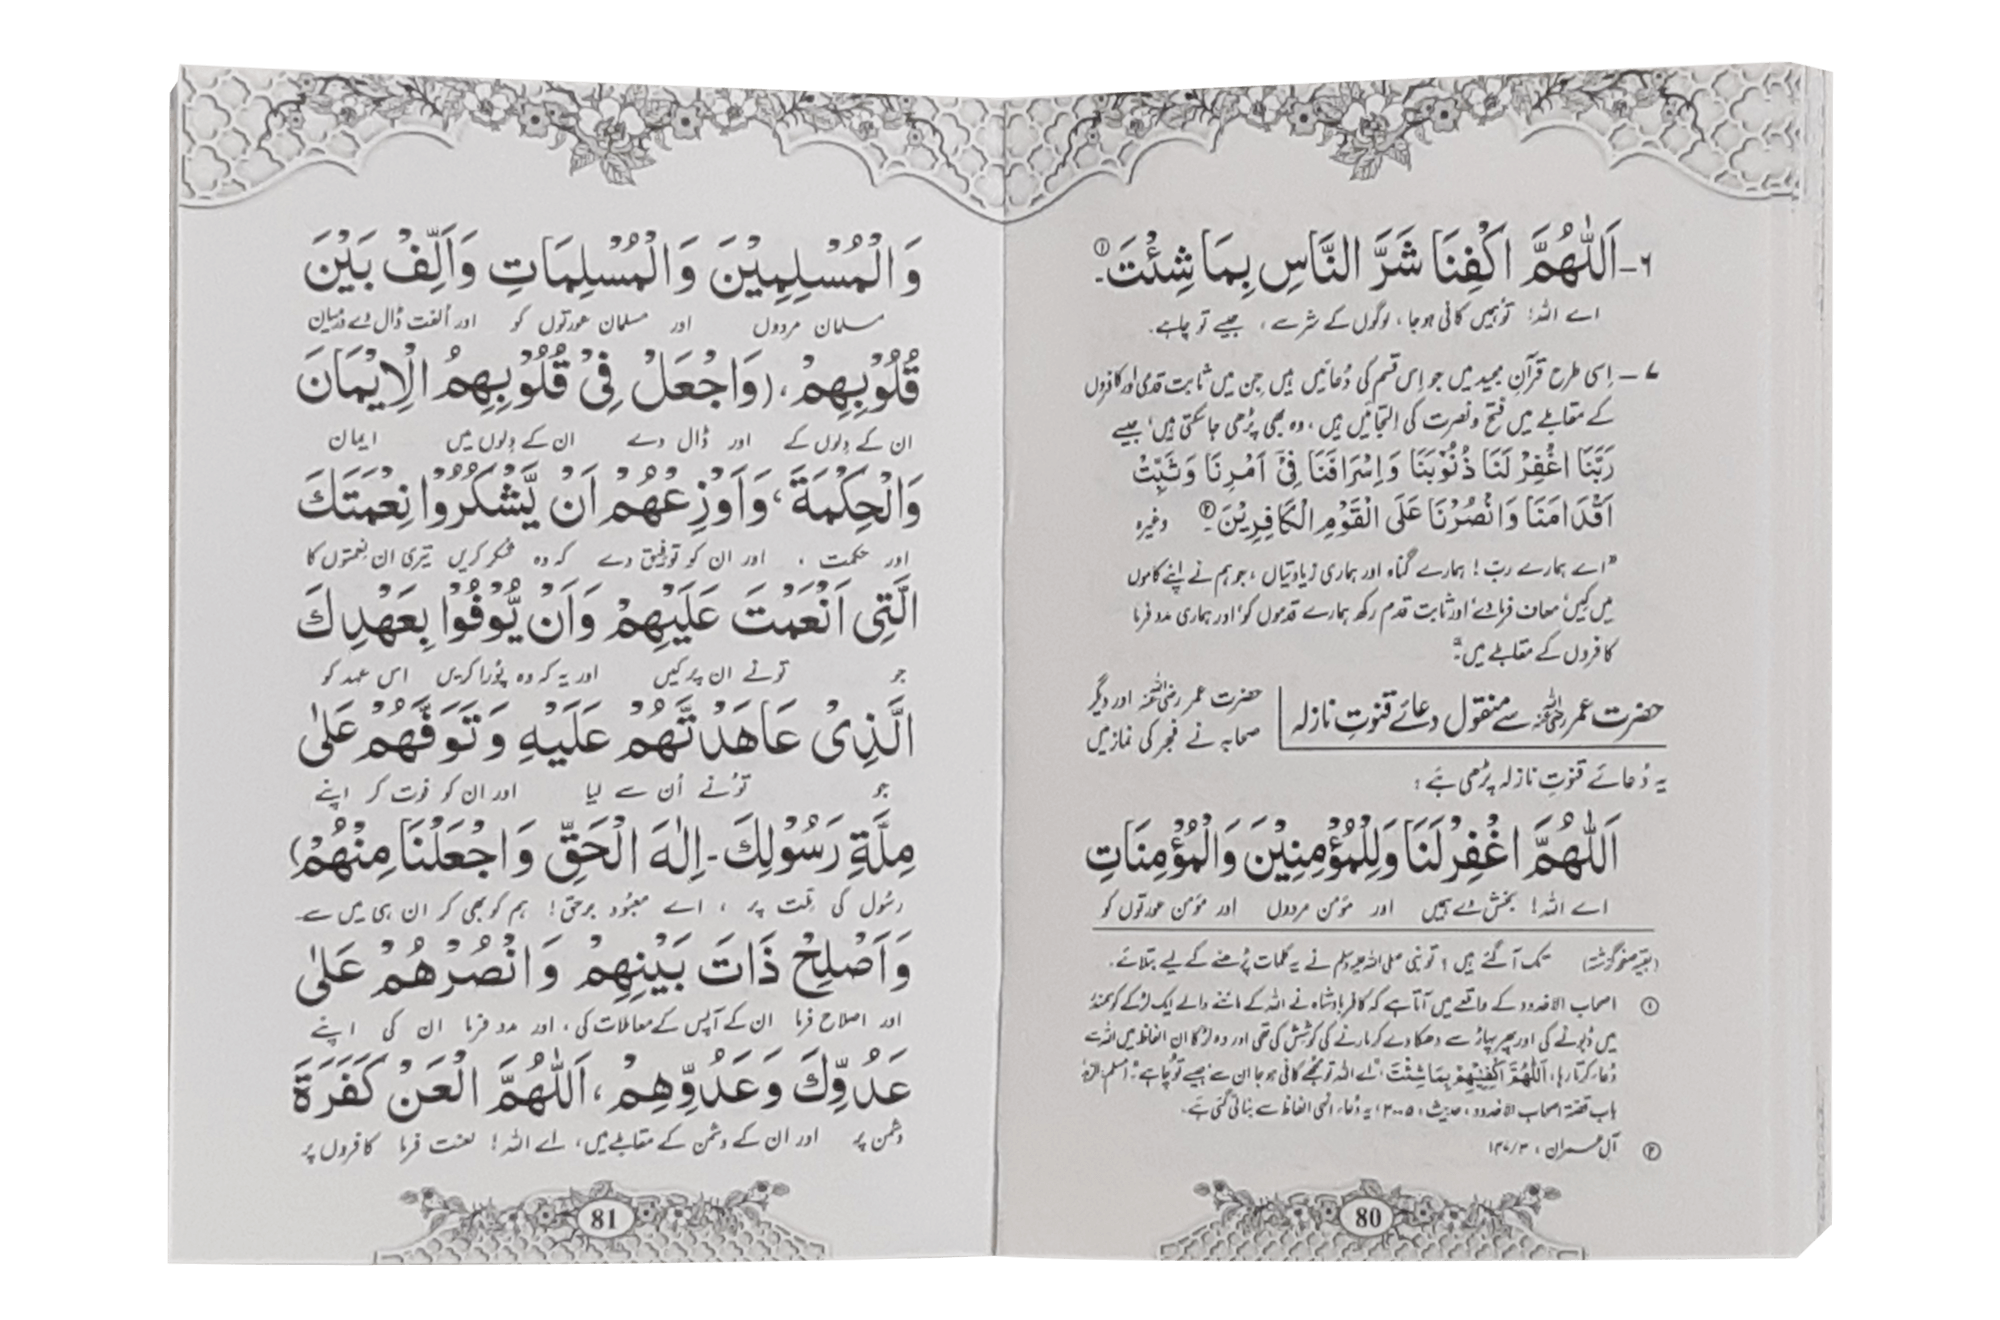 ۶ـ اَللّٰهُمَّ اكْفِنَا شَرَّ النَّاسِ بِمَا شِئْتَ۔ ①
اے اللہ! تو ہمیں کافی ہوجا، لوگوں کے شر سے، جیسے تو چاہے۔
۷ـ اِسی طرح قرآن مجید میں جو اِس قسم کی دُعائیں ہیں جن میں ثابت قدمی اور کافروں
کے مقابلے میں فتح و نصرت کی التجائیں ہیں، وہ بھی پڑھی جاسکتی ہیں، جیسے
رَبَّنَا اغْفِرْ لَنَا ذُنُوْبَنَا وَاِسْرَافَنَا فِیْٓ اَمْرِنَا وَثَبِّتْ
اَقْدَامَنَا وَانْصُرْنَا عَلَى الْقَوْمِ الْكَافِرِيْنَ۔ ② وغیرہ
”اے ہمارے ربّ! ہمارے گناہ اور ہماری زیادتیاں، جو ہم نے اپنے کاموں
میں کیں، معاف فرما دے، اور ثابت قدم رکھ ہمارے قدموں کو، اور ہماری مدد فرما
کافروں کے مقابلے میں۔“
حضرت عمر رضی اللہ عنہ سے منقول دعائے قنوتِ نازلہ
حضرت عمر رضی اللہ عنہ اور دیگر
صحابہ نے فجر کی نماز میں
یہ دُعائے قنوتِ نازلہ پڑھی ہے:
اَللّٰهُمَّ اغْفِرْ لَنَا وَلِلْمُؤْمِنِيْنَ وَالْمُؤْمِنَاتِ
اے اللہ! بخش دے ہمیں اور مؤمن مردوں اور مؤمن عورتوں کو
(بقیہ صفحہ گزشتہ) تک آگئے ہیں؟ تو نبی صلی اللہ علیہ وسلم نے یہ کلمات پڑھنے کے لیے بتلائے۔
① اصحاب الاخدود کے واقعے میں آتا ہے کہ کافر بادشاہ نے اللہ کے ماننے والے ایک لڑکے کو سمندر
میں ڈبونے کی اور پھر پہاڑ سے دھکا دے کر مارنے کی کوشش کی تھی اور وہ لڑکا ان الفاظ میں اللہ سے
دُعاء کرتا رہا، اَللّٰهُمَّ اكْفِنِيْهِمْ بِمَا شِئْتَ، ”اے اللہ تو مجھے کافی ہو جا ان سے، جیسے تو چاہے۔“ (مسلم، الزہد
باب قصّۃ اصحاب الاخدود، حدیث، ۳۰۰۵، یہ دُعاء انہی الفاظ سے بنائی گئی ہے۔
② آلِ عمران، ۱۴۷/۳
80
وَالْمُسْلِمِيْنَ وَالْمُسْلِمَاتِ وَاَلِّفْ بَيْنَ
مسلمان مردوں اور مسلمان عورتوں کو اور اُلفت ڈال دے درمیان
قُلُوْبِهِمْ، (وَاجْعَلْ فِیْ قُلُوْبِهِمُ الْاِيْمَانَ
ان کے دِلوں کے اور ڈال دے ان کے دِلوں میں ایمان
وَالْحِكْمَةَ، وَاَوْزِعْهُمْ اَنْ يَّشْكُرُوْا نِعْمَتَكَ
اور حکمت، اور ان کو توفیق دے کہ وہ شکر کریں تیری ان نعمتوں کا
الَّتِی اَنْعَمْتَ عَلَيْهِمْ وَاَنْ يُّوْفُوْا بِعَهْدِكَ
جو تونے ان پر کیں اور یہ کہ وہ پُورا کریں اس عہد کو
الَّذِیْ عَاهَدْتَّهُمْ عَلَيْهِ وَتَوَفَّهُمْ عَلٰى
جو تُونے اُن سے لیا اور ان کو فوت کر اپنے
مِلَّةِ رَسُوْلِكَ۔ اِلٰهَ الْحَقِّ وَاجْعَلْنَا مِنْهُمْ)
رسُول کی مِلّت پر، اے معبُود برحق! ہم کو بھی کر ان ہی میں سے۔
وَاَصْلِحْ ذَاتَ بَيْنِهِمْ وَانْصُرْهُمْ عَلٰى
اور اصلاح فرما ان کے آپس کے معاملات کی، اور مدد فرما ان کی اپنے
عَدُوِّكَ وَعَدُوِّهِمْ، اَللّٰهُمَّ الْعَنْ كَفَرَةَ
دشمن پر اور ان کے دشمن کے مقابلے میں، اے اللہ! لعنت فرما کافروں پر
81